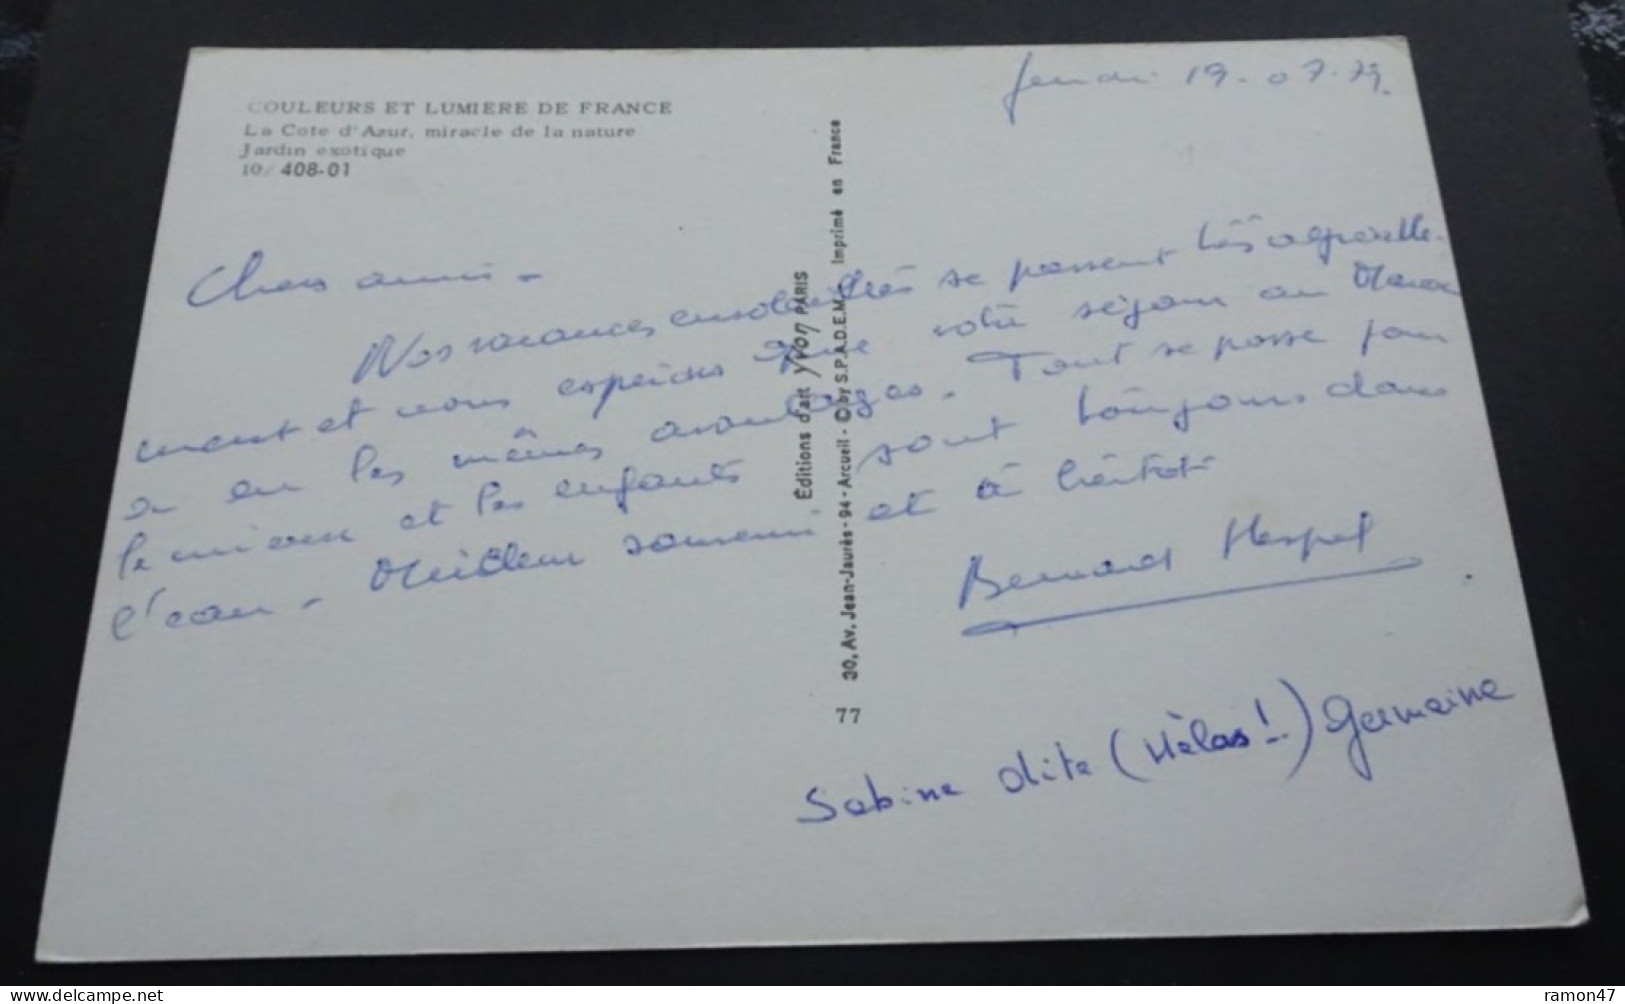 COULEURS ET LUMIERE DE FRANCE
La Cote d'Azur, miracle de la nature
Jardin exotique
10/ 408-01
Jeudi 19-07-79.
Chers amis -
Nos vacances ensoleillées se passent très agréable-
ment et nous espérons que votre séjour au Maroc
a eu les mêmes avantages. Tout se passe pour
le mieux et les enfants sont toujours dans
l'eau - Meilleur souvenir et à bientôt
Bernard
Sabine dite (Hélas!..) Germaine
Éditions d'art yvon PARIS
30, Av. Jean-Jaurès - 94 - Arcueil - © by S.P.A.D.E.M. Imprimé en France
77
© Delcampe.net
ramon47